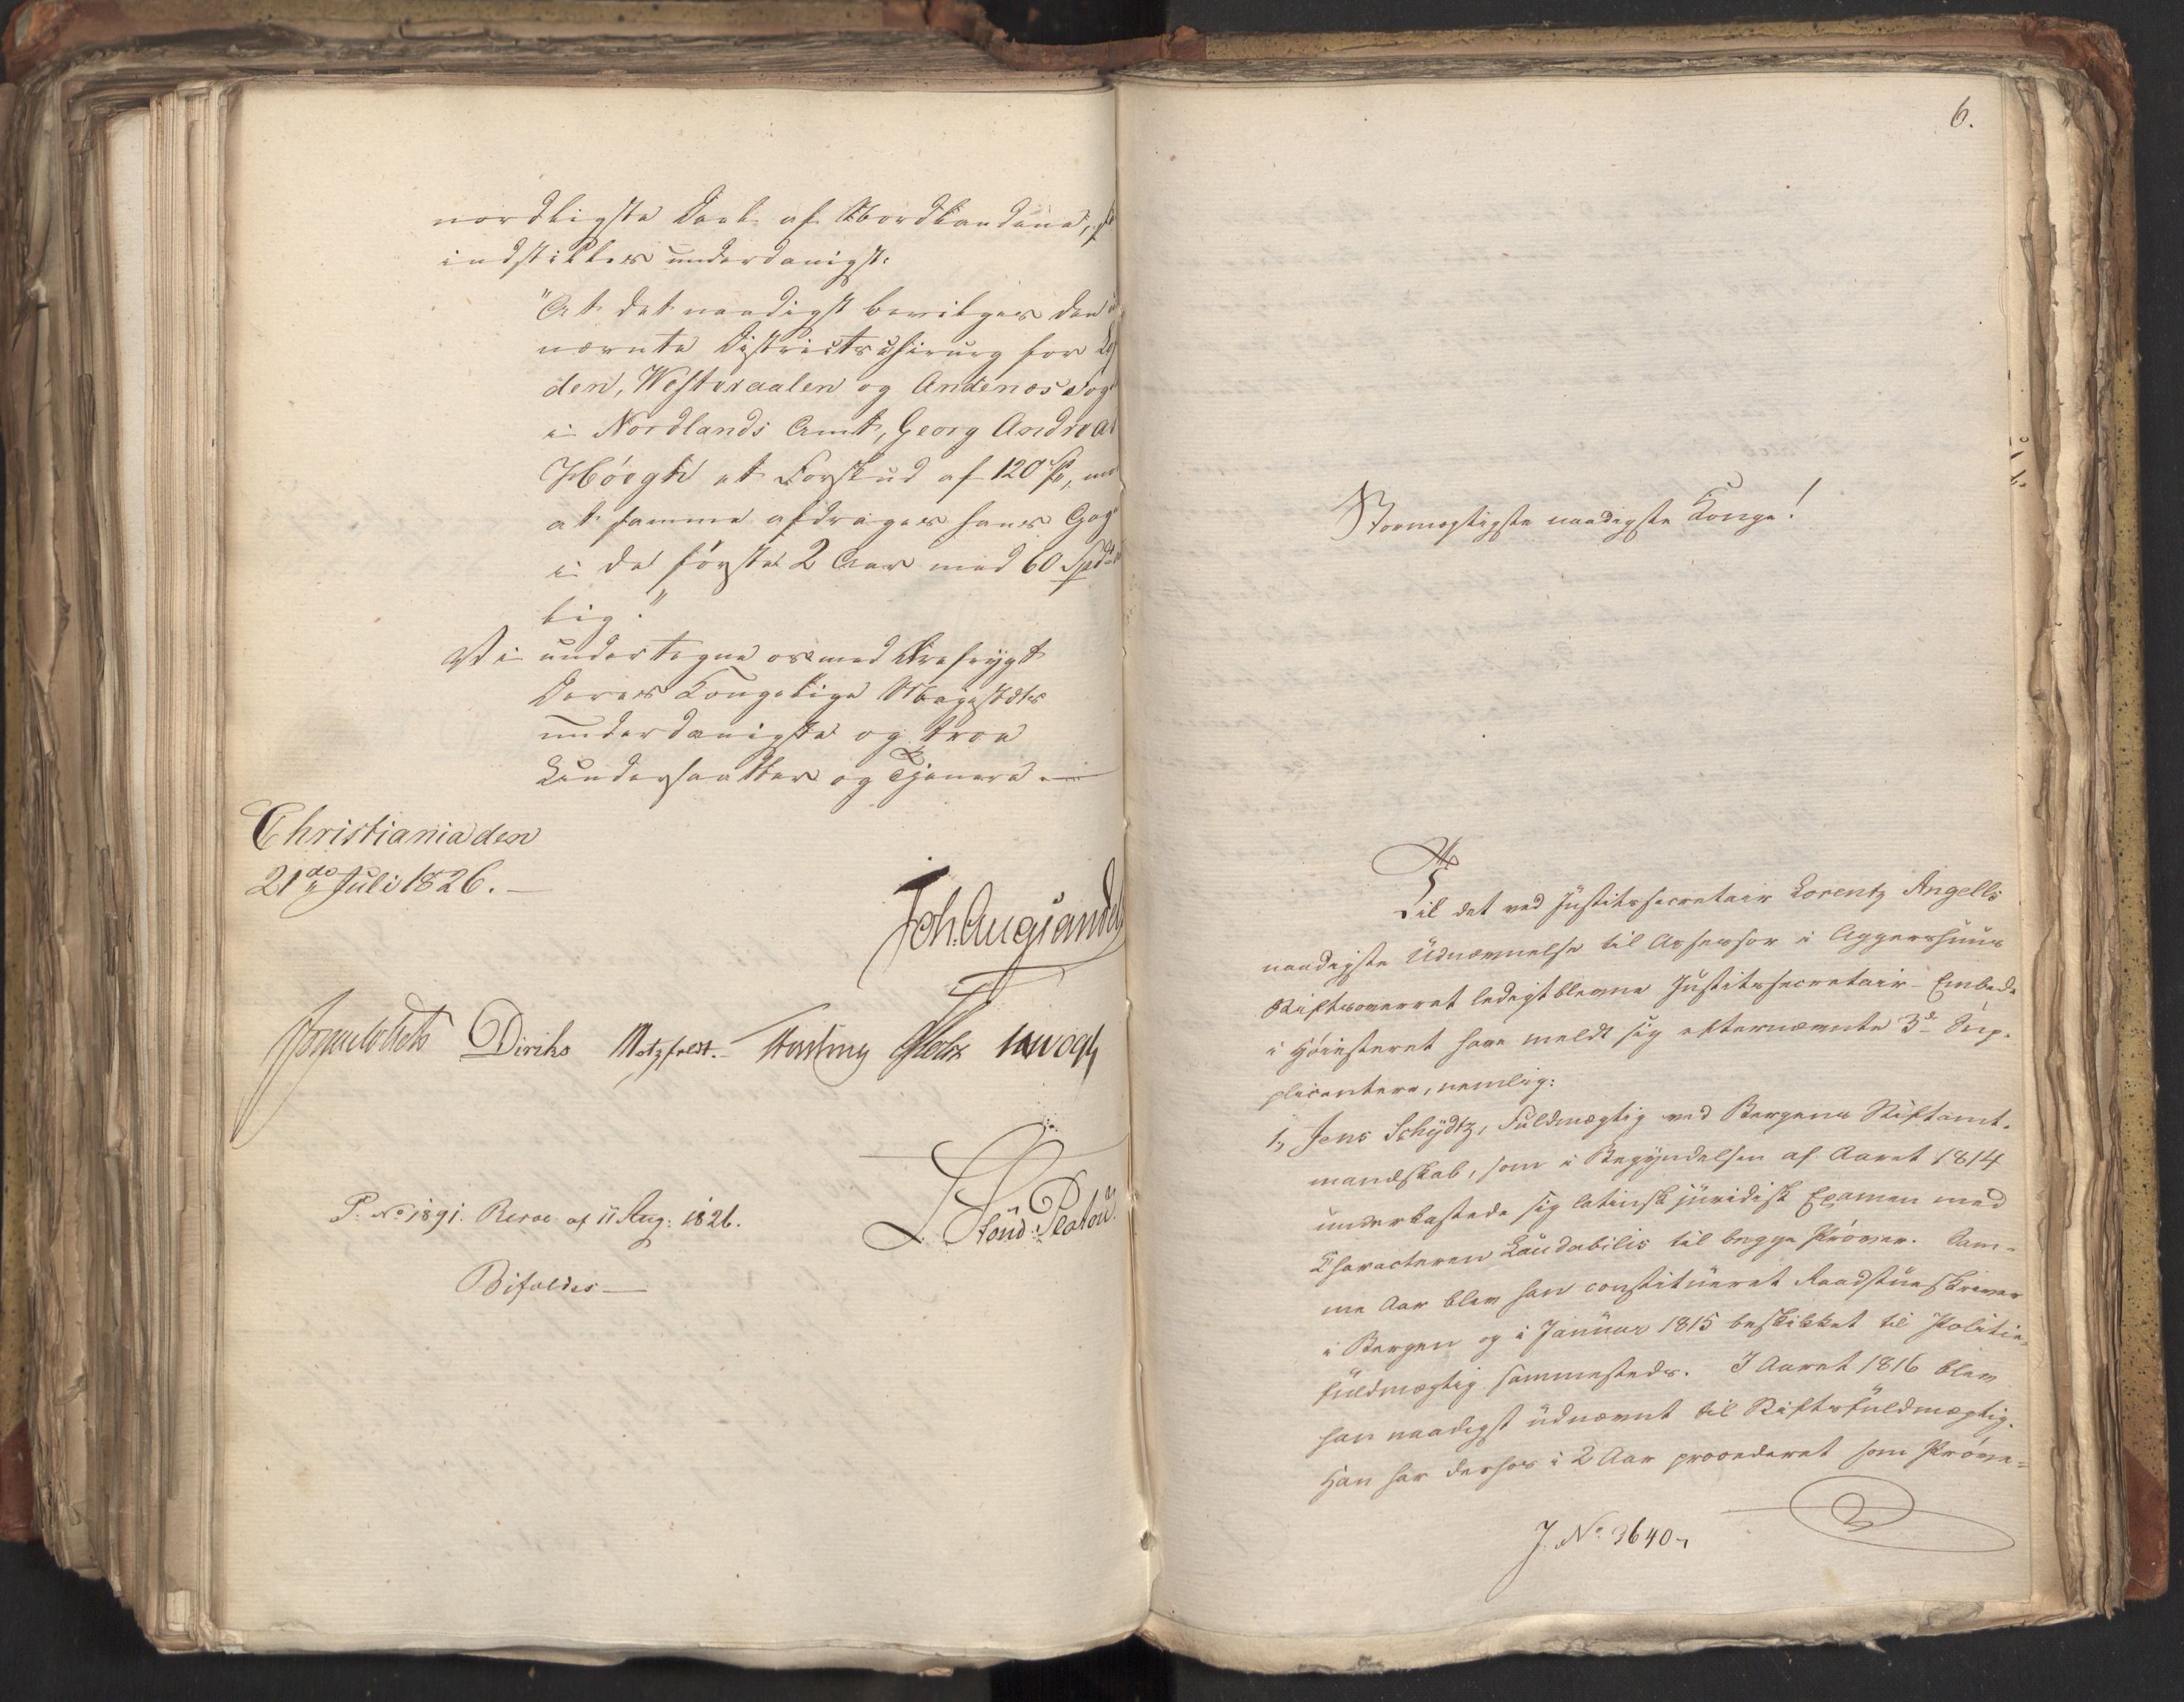 nordligste Deel af Nordlandene,
indstilles underdanigst:
"At det naadigst bevilges den
nævnte Districtschirurg for
den, Westeraalen og Andenæs
i Nordlands Amt, Georg Andreas
Høegh et Forskud af 120 Spd,
at samme afdrages hans
i de første 2 Aar med 60 Spd
lig."
Vi undertegne os med Ærefrygt
Deres Kongelige Majestæts
underdanigste og troe
Undersaatter og Tjenere.
Christiania den
21de Juli 1826.
Joh. Aug. Sandels
Diriks Motzfeldt.
P. No 1891. Resol. af 11 Aug: 1826.
Bifaldes
6.
Stormægtigste naadigste Konge!
Til det ved Justitssecretair Lorentz Angells
naadigste Udnævnelse til Assessor i Aggershuus
Stiftsoverret ledigtblevne Justitssecretair-Embede
i Høiesteret have meldt sig efternævnte 3de Sup-
plicantere, nemlig:
1., Jens Schydtz, Fuldmægtig ved Bergens Stiftamt-
mandskab, som i Begyndelsen af Aaret 1814
underkastede sig latinsk juridisk Examen med
Characteren Laudabilis til begge Prøver. Sam-
me Aar blev han constitueret Raadstueskriver
i Bergen og i Januar 1815 beskikket til Politie-
fuldmægtig sammesteds. I Aaret 1816 blev
han naadigst udnævnt til Stiftsfuldmægtig.
Han har derhos i 2 Aar procederet som Prøve-
J. No. 3640